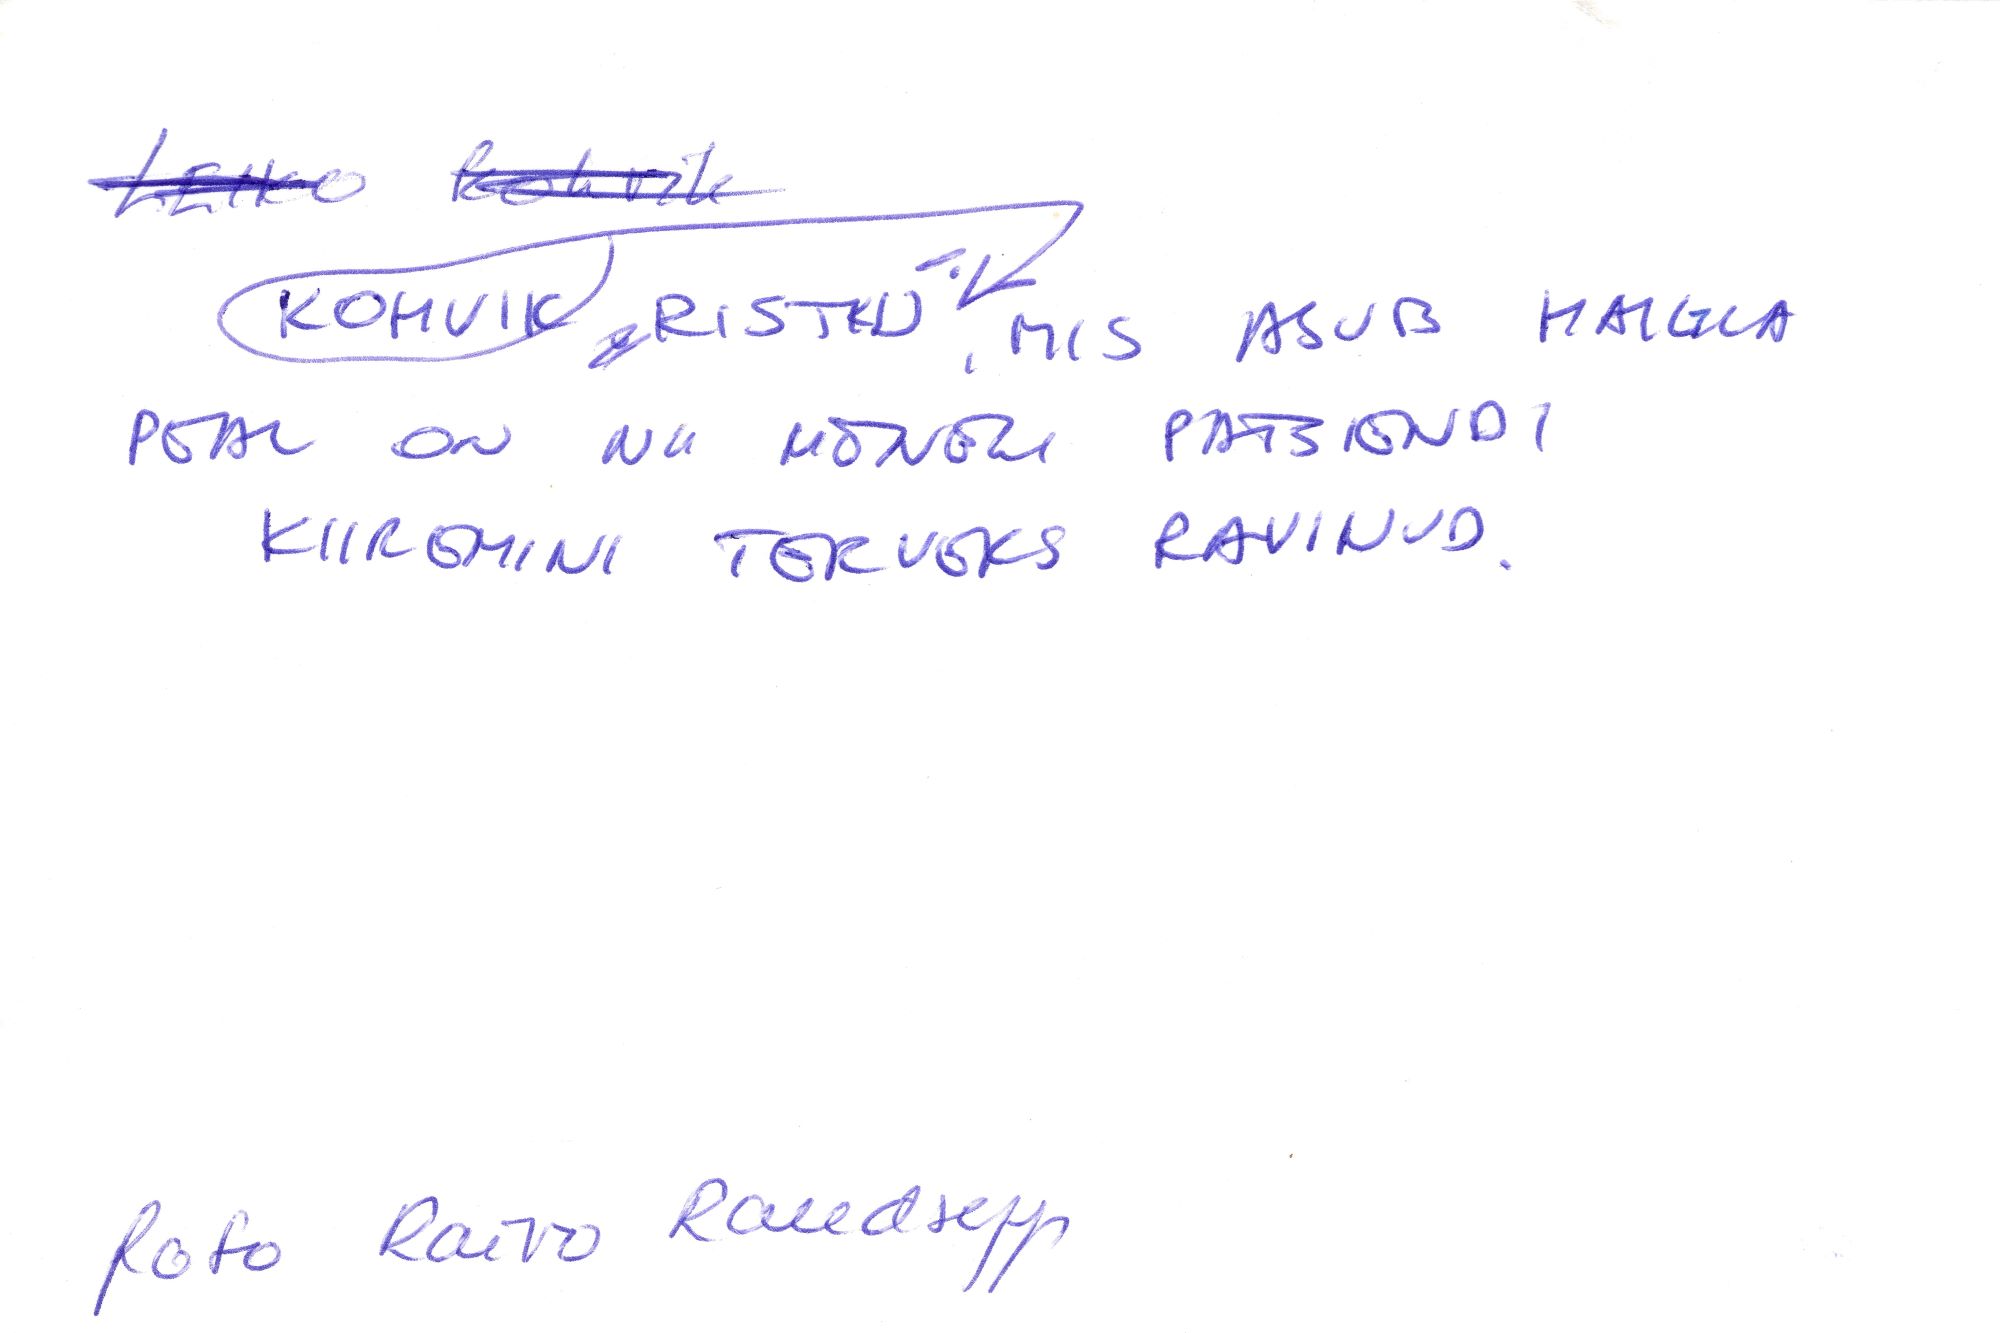 Leiko kohvik
KOHVIK „RISTKÜ", MIS ASUB HAIGLA
PEAL ON NII MÕNEGI PATSIENDI
KIIREMINI TERVEKS RAVINUD.
Foto Raivo Raudsepp